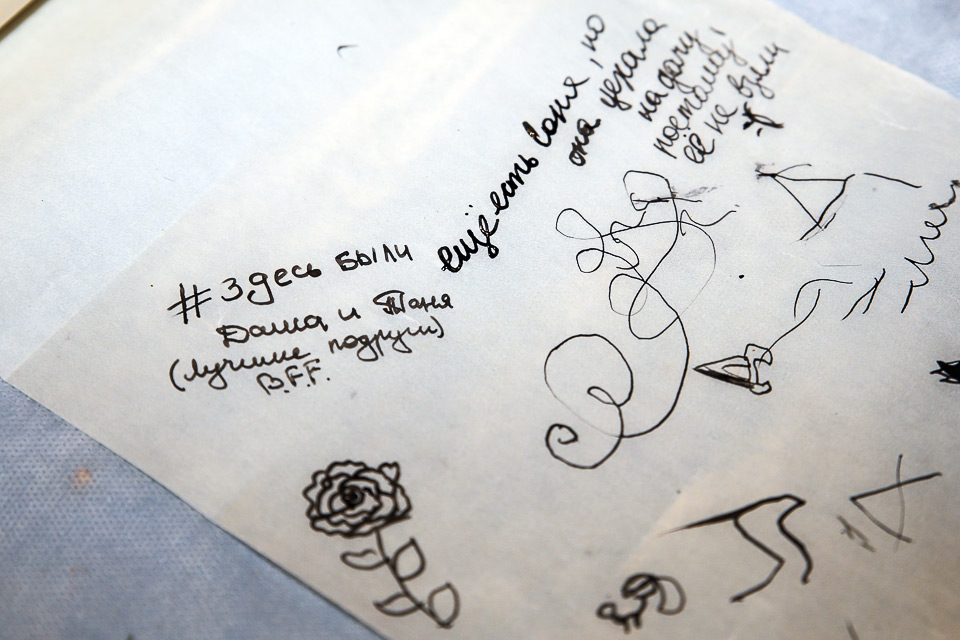 #здесь были
Даша и Таня
(лучшие подруги)
B.F.F.
ещё есть Соня, но
она уехала
на дачу,
поэтому
её не взяли